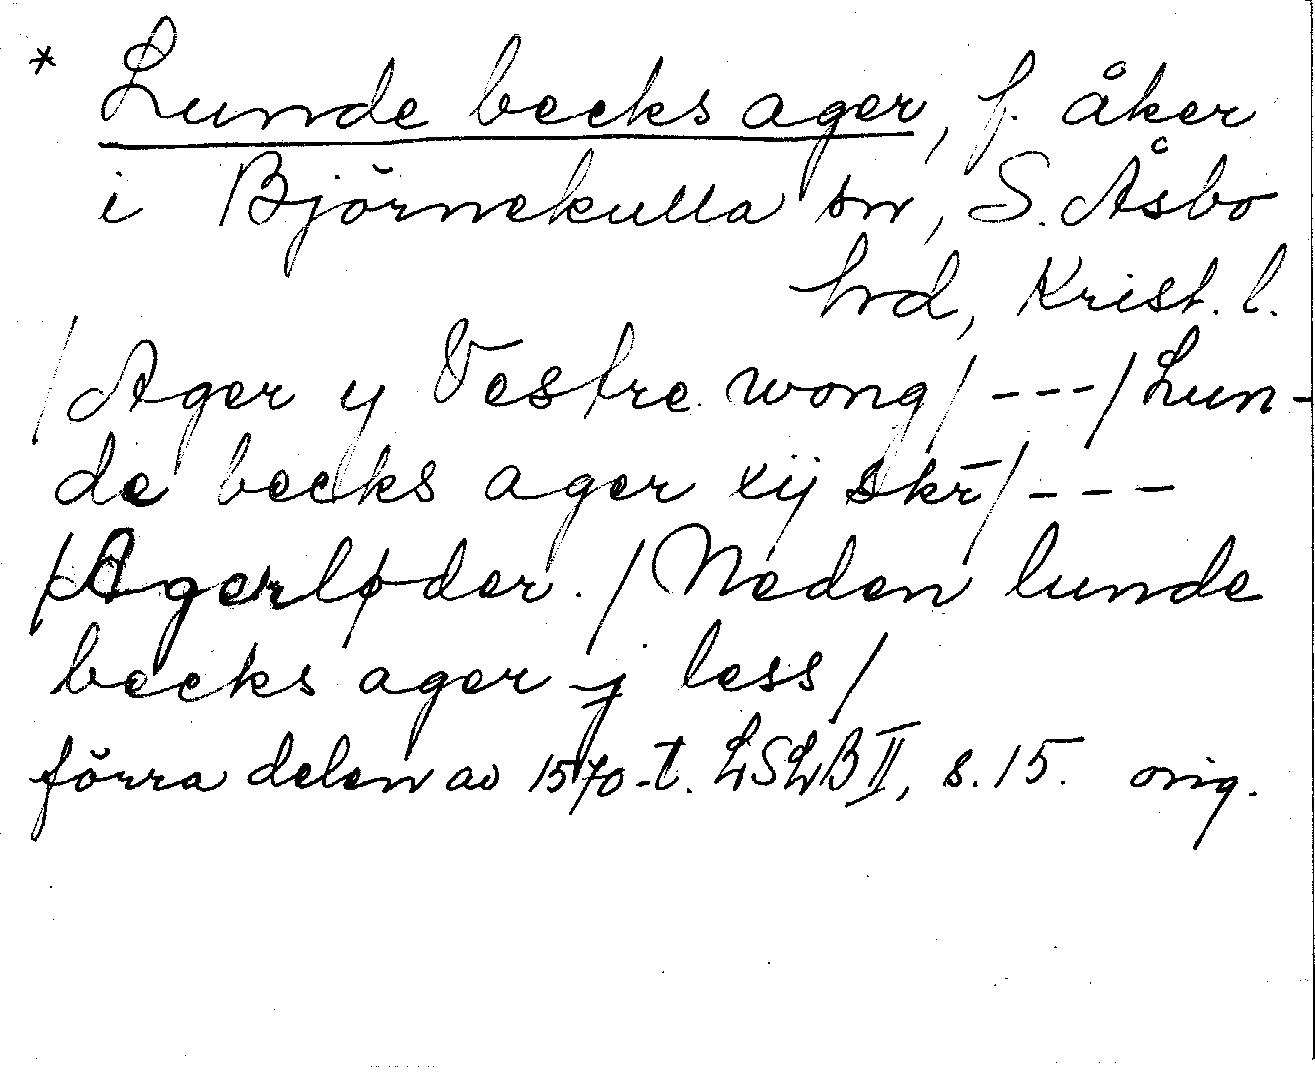 * Lunde becks ager, f. åker
i Björnekulla sn, S. Åsbo
hrd, Krist. l.
/Ager y Vestre wong/ ---/Lun-
de becks ager xij skr̄/ ---
/Agerløder. /Neden lunde
becks ager j less/
förra delen av 1570-t. LSLB II, s. 15. orig.